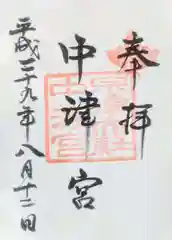 奉拝
中津宮
平成二十九年八月十二日